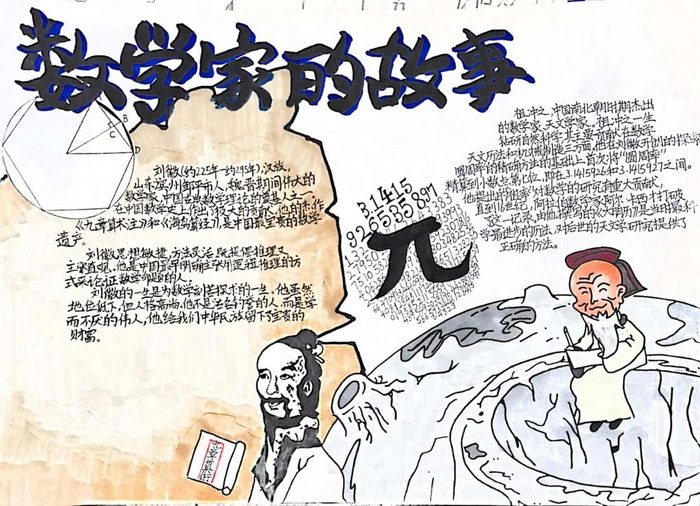 数学家的故事
刘徽(约225年—约295年),汉族,
山东滨州邹平市人,魏晋期间伟大的
数学家,中国古典数学理论的奠基人之一,
在中国数学史上作出了极大的贡献,他的杰作
《九章算术注》和《海岛算经》,是中国最宝贵的数学
遗产。
刘徽思想敏捷,方法灵活,既提倡推理又
主张直观,他是中国最早明确主张用逻辑推理的方
式来论证数学命题的人。
刘徽的一生是为数学刻苦探求的一生,他虽然
地位低下,但人格高尚,他不是沽名钓誉的人,而是学
而不厌的伟人,他给我们中华民族留下了宝贵的
财富。
祖冲之,中国南北朝时期杰出
的数学家、天文学家。祖冲之一生
钻研自然科学,其主要贡献在数学、
天文历法和机械制造三方面,他在刘徽开创的探索
圆周率的精确方法的基础上,首次将"圆周率"
精算到小数点第七位,即在3.1415926和3.1415927之间。
他提出的"祖率"对数学的研究有重大贡献,
直到16世纪,阿拉伯数学家阿尔·卡西才打破
这一纪录,由他撰写的《大明历》是当时最科
学最进步的历法,对后世的天文学研究提供了
正确的方法。
3.1415
92653589
π
九章算术
B
C
D